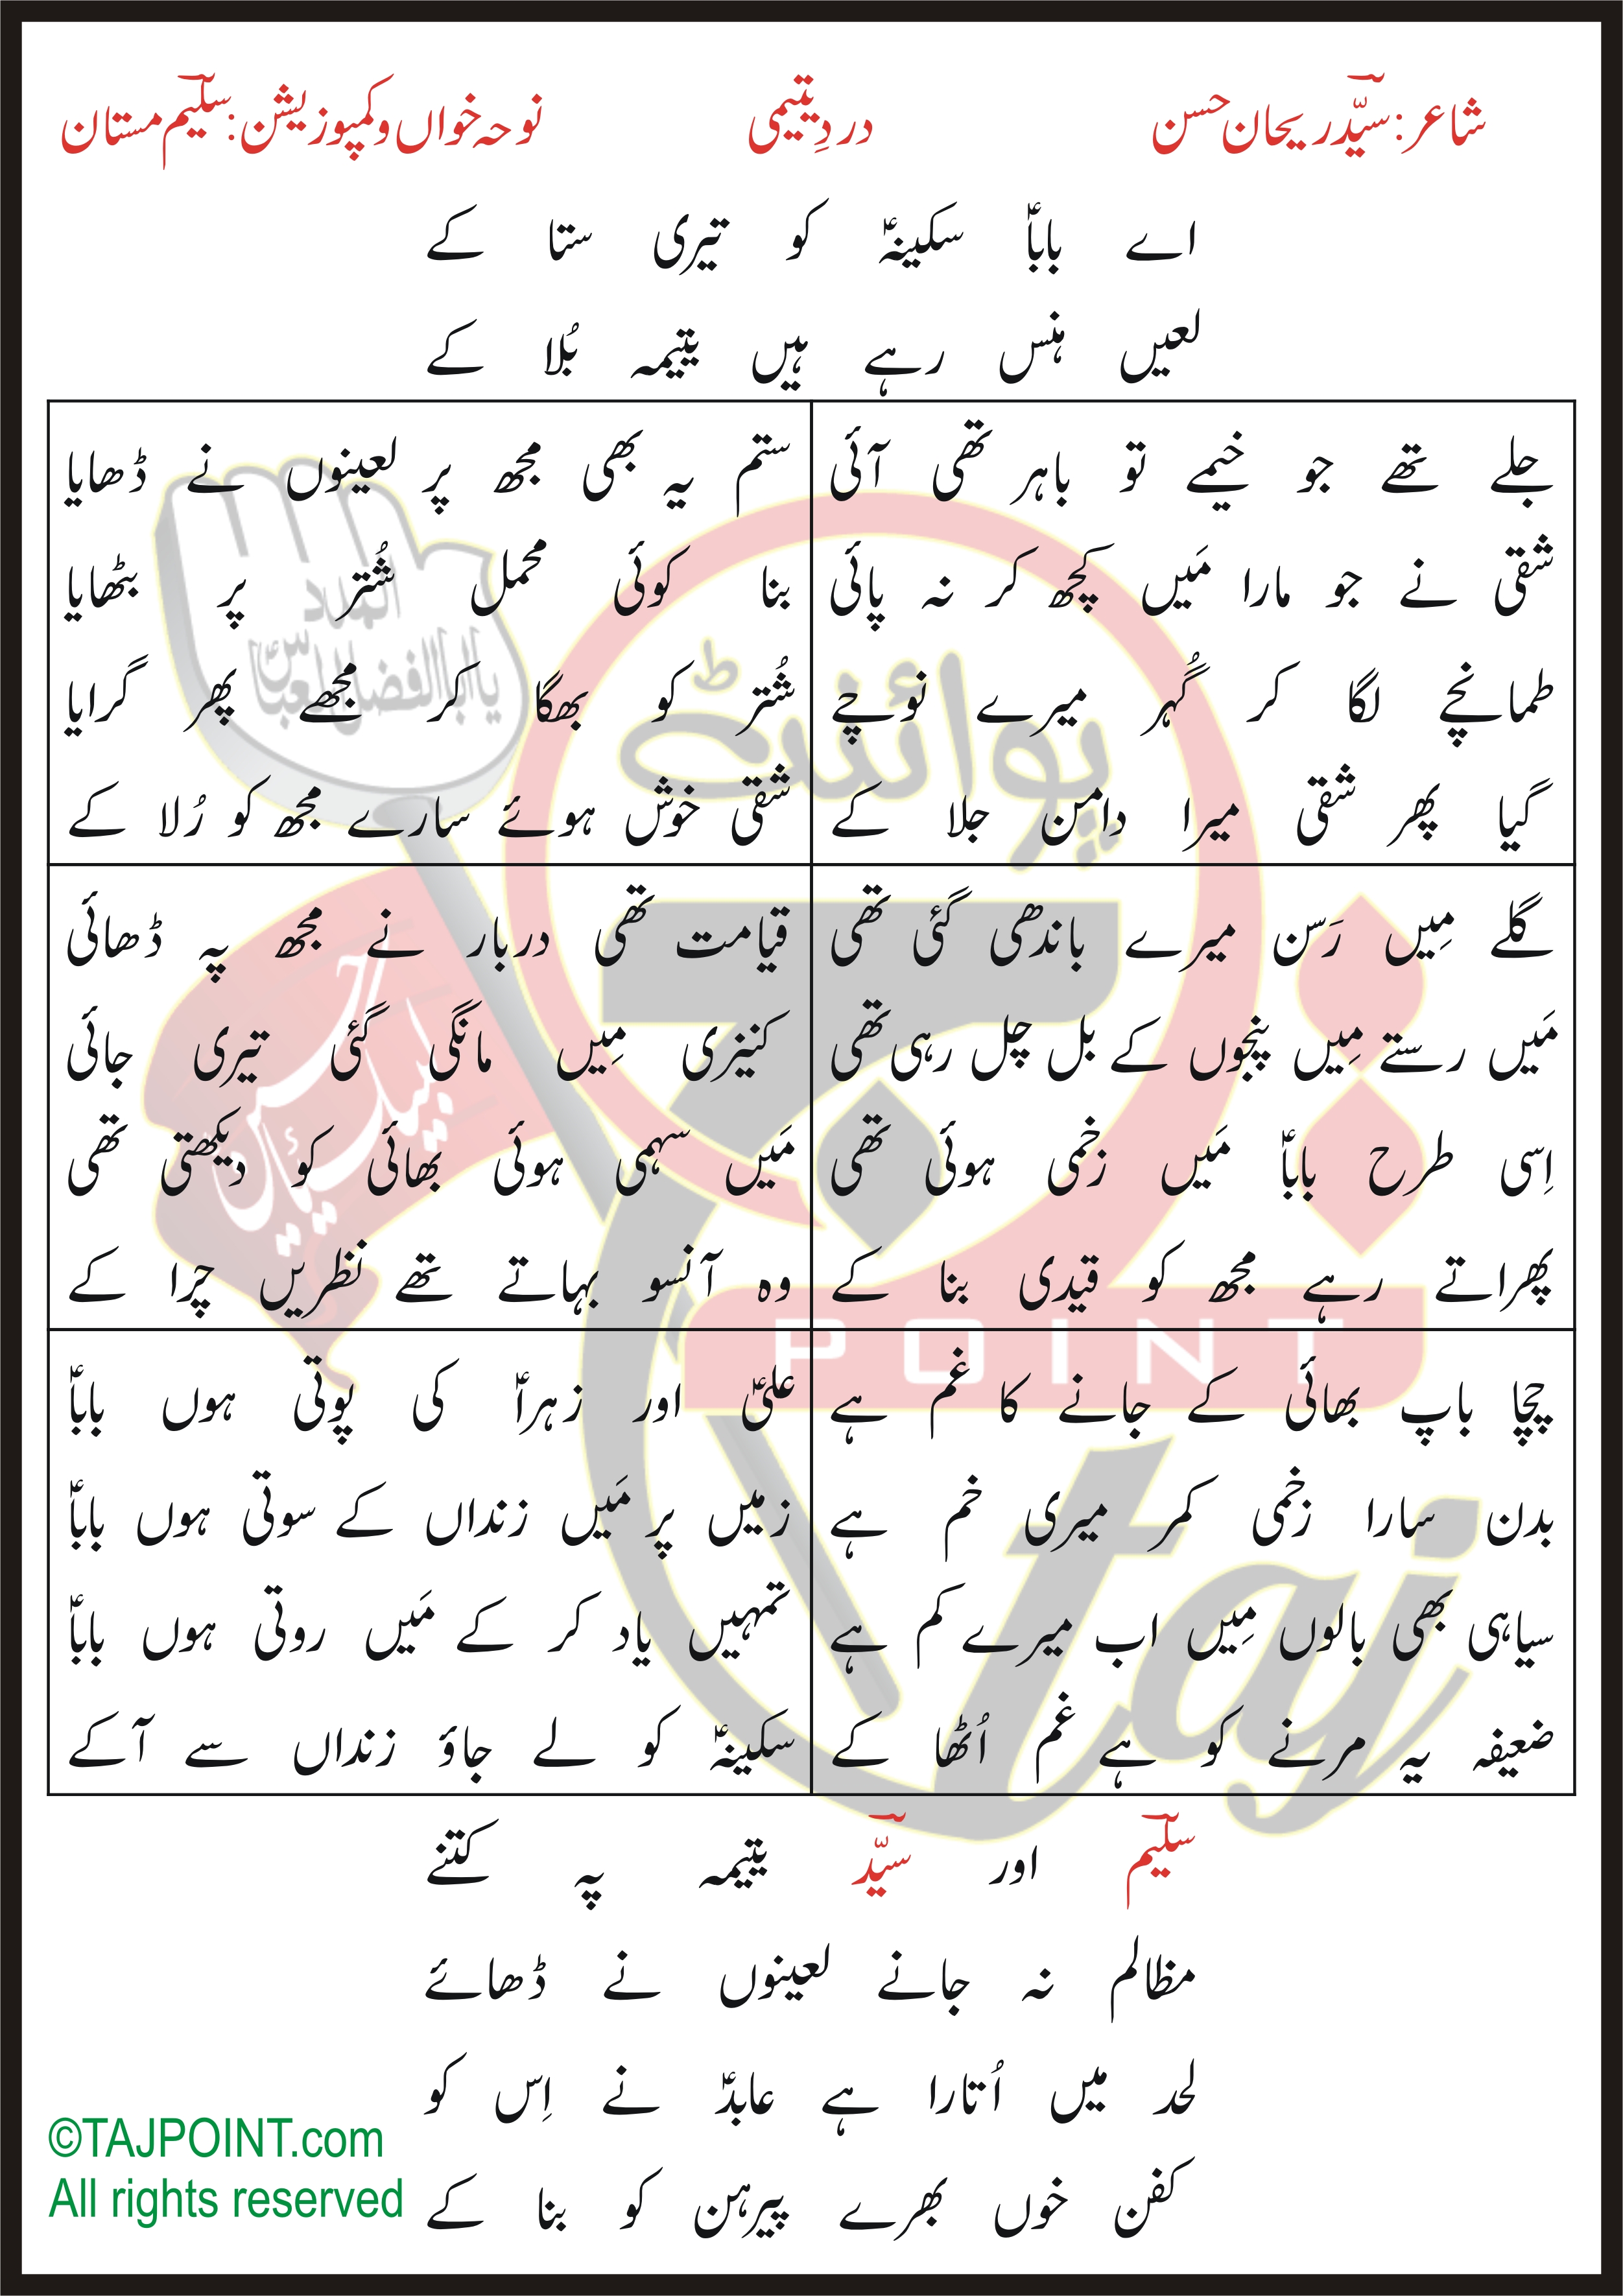 شاعر: سیّد ریحان حسن
دردِ یتیمی
نوحہ خواں و کمپوزیشن: سلیم مستان
اے باباؑ سکینہؑ کو تیری ستا کے
لعیں ہنس رہے ہیں یتیمہ بُلا کے
جلے تھے جو خیمے تو باہر تھی آئی
شقی نے جو مارا مَیں کچھ کر نہ پائی
طمانچے لگا کر گُہر میرے نوچے
گیا پھر شقی میرا دامن جلا کے
ستم یہ بھی مجھ پر لعینوں نے ڈھایا
بنا کوئی محمل شُتر پر بٹھایا
شُتر کو بھگا کر مجھے پھر گرایا
شقی خوش ہوئے سارے مجھ کو رُلا کے
گلے مِیں رَسن میرے باندھی گئی تھی
مَیں رستے مِیں پنجوں کے بل چل رہی تھی
اِسی طرح باباؑ مَیں زخمی ہوئی تھی
پھراتے رہے مجھ کو قیدی بنا کے
قیامت تھی دربار نے مجھ پہ ڈھائی
کنیزی مِیں مانگی گئی تیری جائی
مَیں سہمی ہوئی بھائی کو دیکھتی تھی
وہ آنسو بہاتے تھے نظریں چرا کے
چچا باپ بھائی کے جانے کا غم ہے
بدن سارا زخمی کمر میری خم ہے
سیاہی بھی بالوں مِیں اب میرے کم ہے
ضعیفہ یہ مرنے کو ہے غم اُٹھا کے
علیؑ اور زہراؑ کی پوتی ہوں باباؑ
زمیں پر مَیں زنداں کے سوتی ہوں باباؑ
تمہیں یاد کر کے مَیں روتی ہوں باباؑ
سکینہؑ کو لے جاؤ زنداں سے آکے
سلیم اور سیّد یتیمہ پہ کتنے
مظالم نہ جانے لعینوں نے ڈھائے
لحد میں اُتارا ہے عابدؑ نے اِس کو
کفن خوں بھرے پیرہن کو بنا کے
©TAJPOINT.com
All rights reserved
المدد
یا ابا الفضل العباسؑ
لبیک یا حسینؑ
تاج
پوائنٹ
POINT
taj